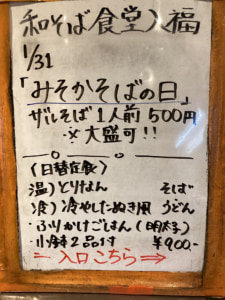 和そば食堂八福
1/31
「みそかそばの日」
ザルそば 1人前 500円
※ 大盛可!!
〈日替定食〉
温)とりなん そば
冷)冷やしたぬき風 うどん
・ふりかけごはん(明太子)
・小鉢2品付 ¥900-
入口こちら⇒